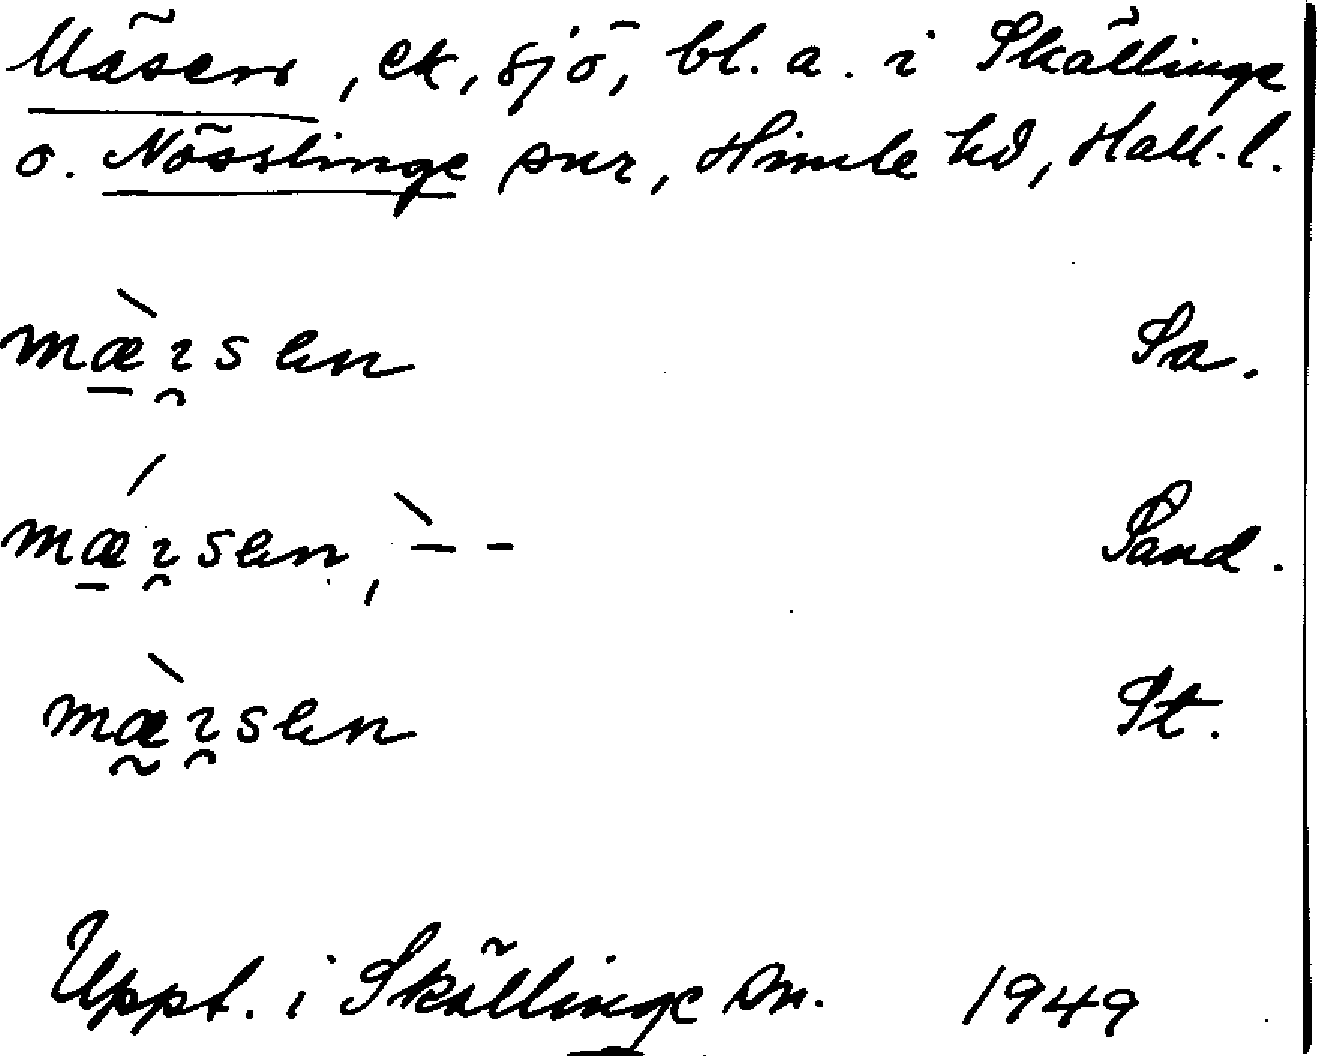 Mäsen, ek, sjö, bl. a. i Skällinge
o. Nösslinge snr, Himle hd, Hall. l.
mæ̀ɪ̯sen Sa.
mǽɪ̯sen, `- - Sand.
mæ̀ɪ̯sen St.
Uppt. i Skällinge sn. 1949